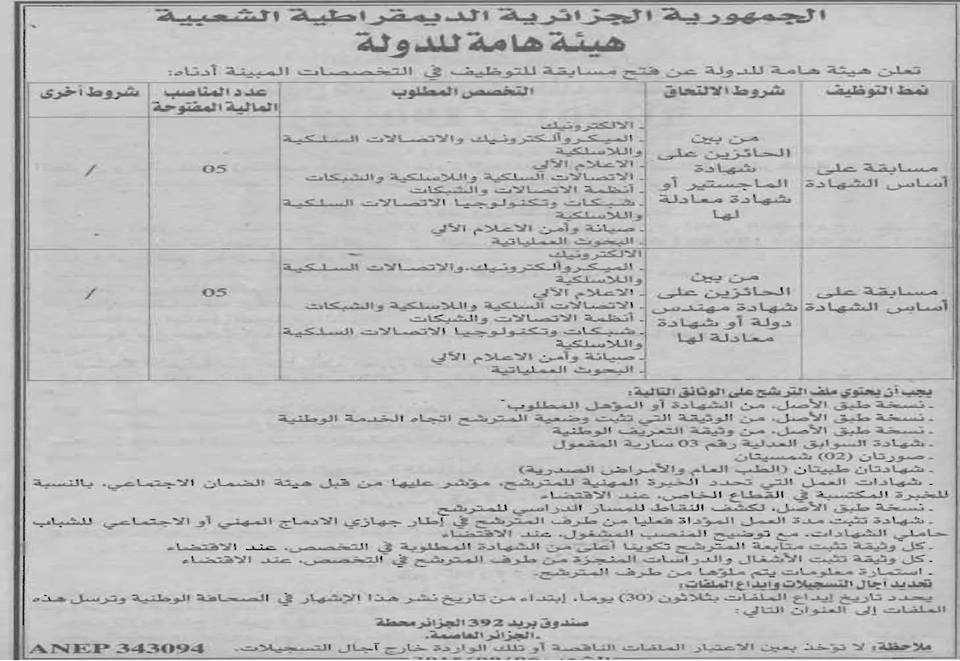 الجمهورية الجزائرية الديمقراطية الشعبية
هيئة هامة للدولة
تعلن هيئة هامة للدولة عن فتح مسابقة للتوظيف في التخصصات المبينة أدناه:
نمط التوظيف
شروط الالتحاق
التخصص المطلوب
عدد المناصب
المالية المفتوحة
شروط أخرى
مسابقة على
أساس الشهادة
من بين
الحائزين على
شهادة
الماجستير أو
شهادة معادلة
لها
- الالكترونيك
- الميكروألكترونيك والاتصالات السلكية
واللاسلكية
- الاعلام الآلي
- الاتصالات السلكية واللاسلكية والشبكات
- أنظمة الاتصالات والشبكات
- شبكات وتكنولوجيا الاتصالات السلكية
واللاسلكية
- صيانة وأمن الاعلام الآلي
- البحوث العملياتية
05
/
مسابقة على
أساس الشهادة
من بين
الحائزين على
شهادة مهندس
دولة أو شهادة
معادلة لها
الالكترونيك
- الميكروألكترونيك، والاتصالات السلكية
واللاسلكية
- الاعلام الآلي
- الاتصالات السلكية واللاسلكية والشبكات
- أنظمة الاتصالات والشبكات
- شبكات وتكنولوجيا الاتصالات السلكية
واللاسلكية
- صيانة وأمن الاعلام الآلي
- البحوث العملياتية
05
/
يجب أن يحتوي ملف الترشح على الوثائق التالية:
- نسخة طبق الأصل، من الشهادة أو المؤهل المطلوب
- نسخة طبق الأصل، من الوثيقة التي تثبت وضعية المترشح اتجاه الخدمة الوطنية
- نسخة طبق الأصل، من وثيقة التعريف الوطنية
- شهادة السوابق العدلية رقم 03 سارية المفعول
- صورتان (02) شمسيتان
- شهادتان طبيتان (الطب العام والأمراض الصدرية)
- شهادات العمل التي تحدد الخبرة المهنية للمترشح، مؤشر عليها من قبل هيئة الضمان الاجتماعي، بالنسبة
للخبرة المكتسبة في القطاع الخاص، عند الاقتضاء
- نسخة طبق الأصل، لكشف النقاط للمسار الدراسي للمترشح
- شهادة تثبت مدة العمل المؤداة فعليا من طرف المترشح في إطار جهازي الادماج المهني أو الاجتماعي للشباب
حاملي الشهادات، مع توضيح المنصب المشغول، عند الاقتضاء
- كل وثيقة تثبت متابعة المترشح تكوينا أعلى من الشهادة المطلوبة في التخصص، عند الاقتضاء
- كل وثيقة تثبت الأشغال والدراسات المنجزة من طرف المترشح في التخصص، عند الاقتضاء
- استمارة معلومات يتم ملؤها من طرف المترشح.
تحديد آجال التسجيلات وإيداع الملفات:
يحدد تاريخ إيداع الملفات بثلاثون (30) يوما، إبتداء من تاريخ نشر هذا الإشهار في الصحافة الوطنية وترسل هذه
الملفات إلى العنوان التالي:
صندوق بريد 392 الجزائر محطة
- الجزائر العاصمة.
ملاحظة: لا تؤخذ بعين الاعتبار الملفات الناقصة أو تلك الواردة خارج آجال التسجيلات.
ANEP 343094